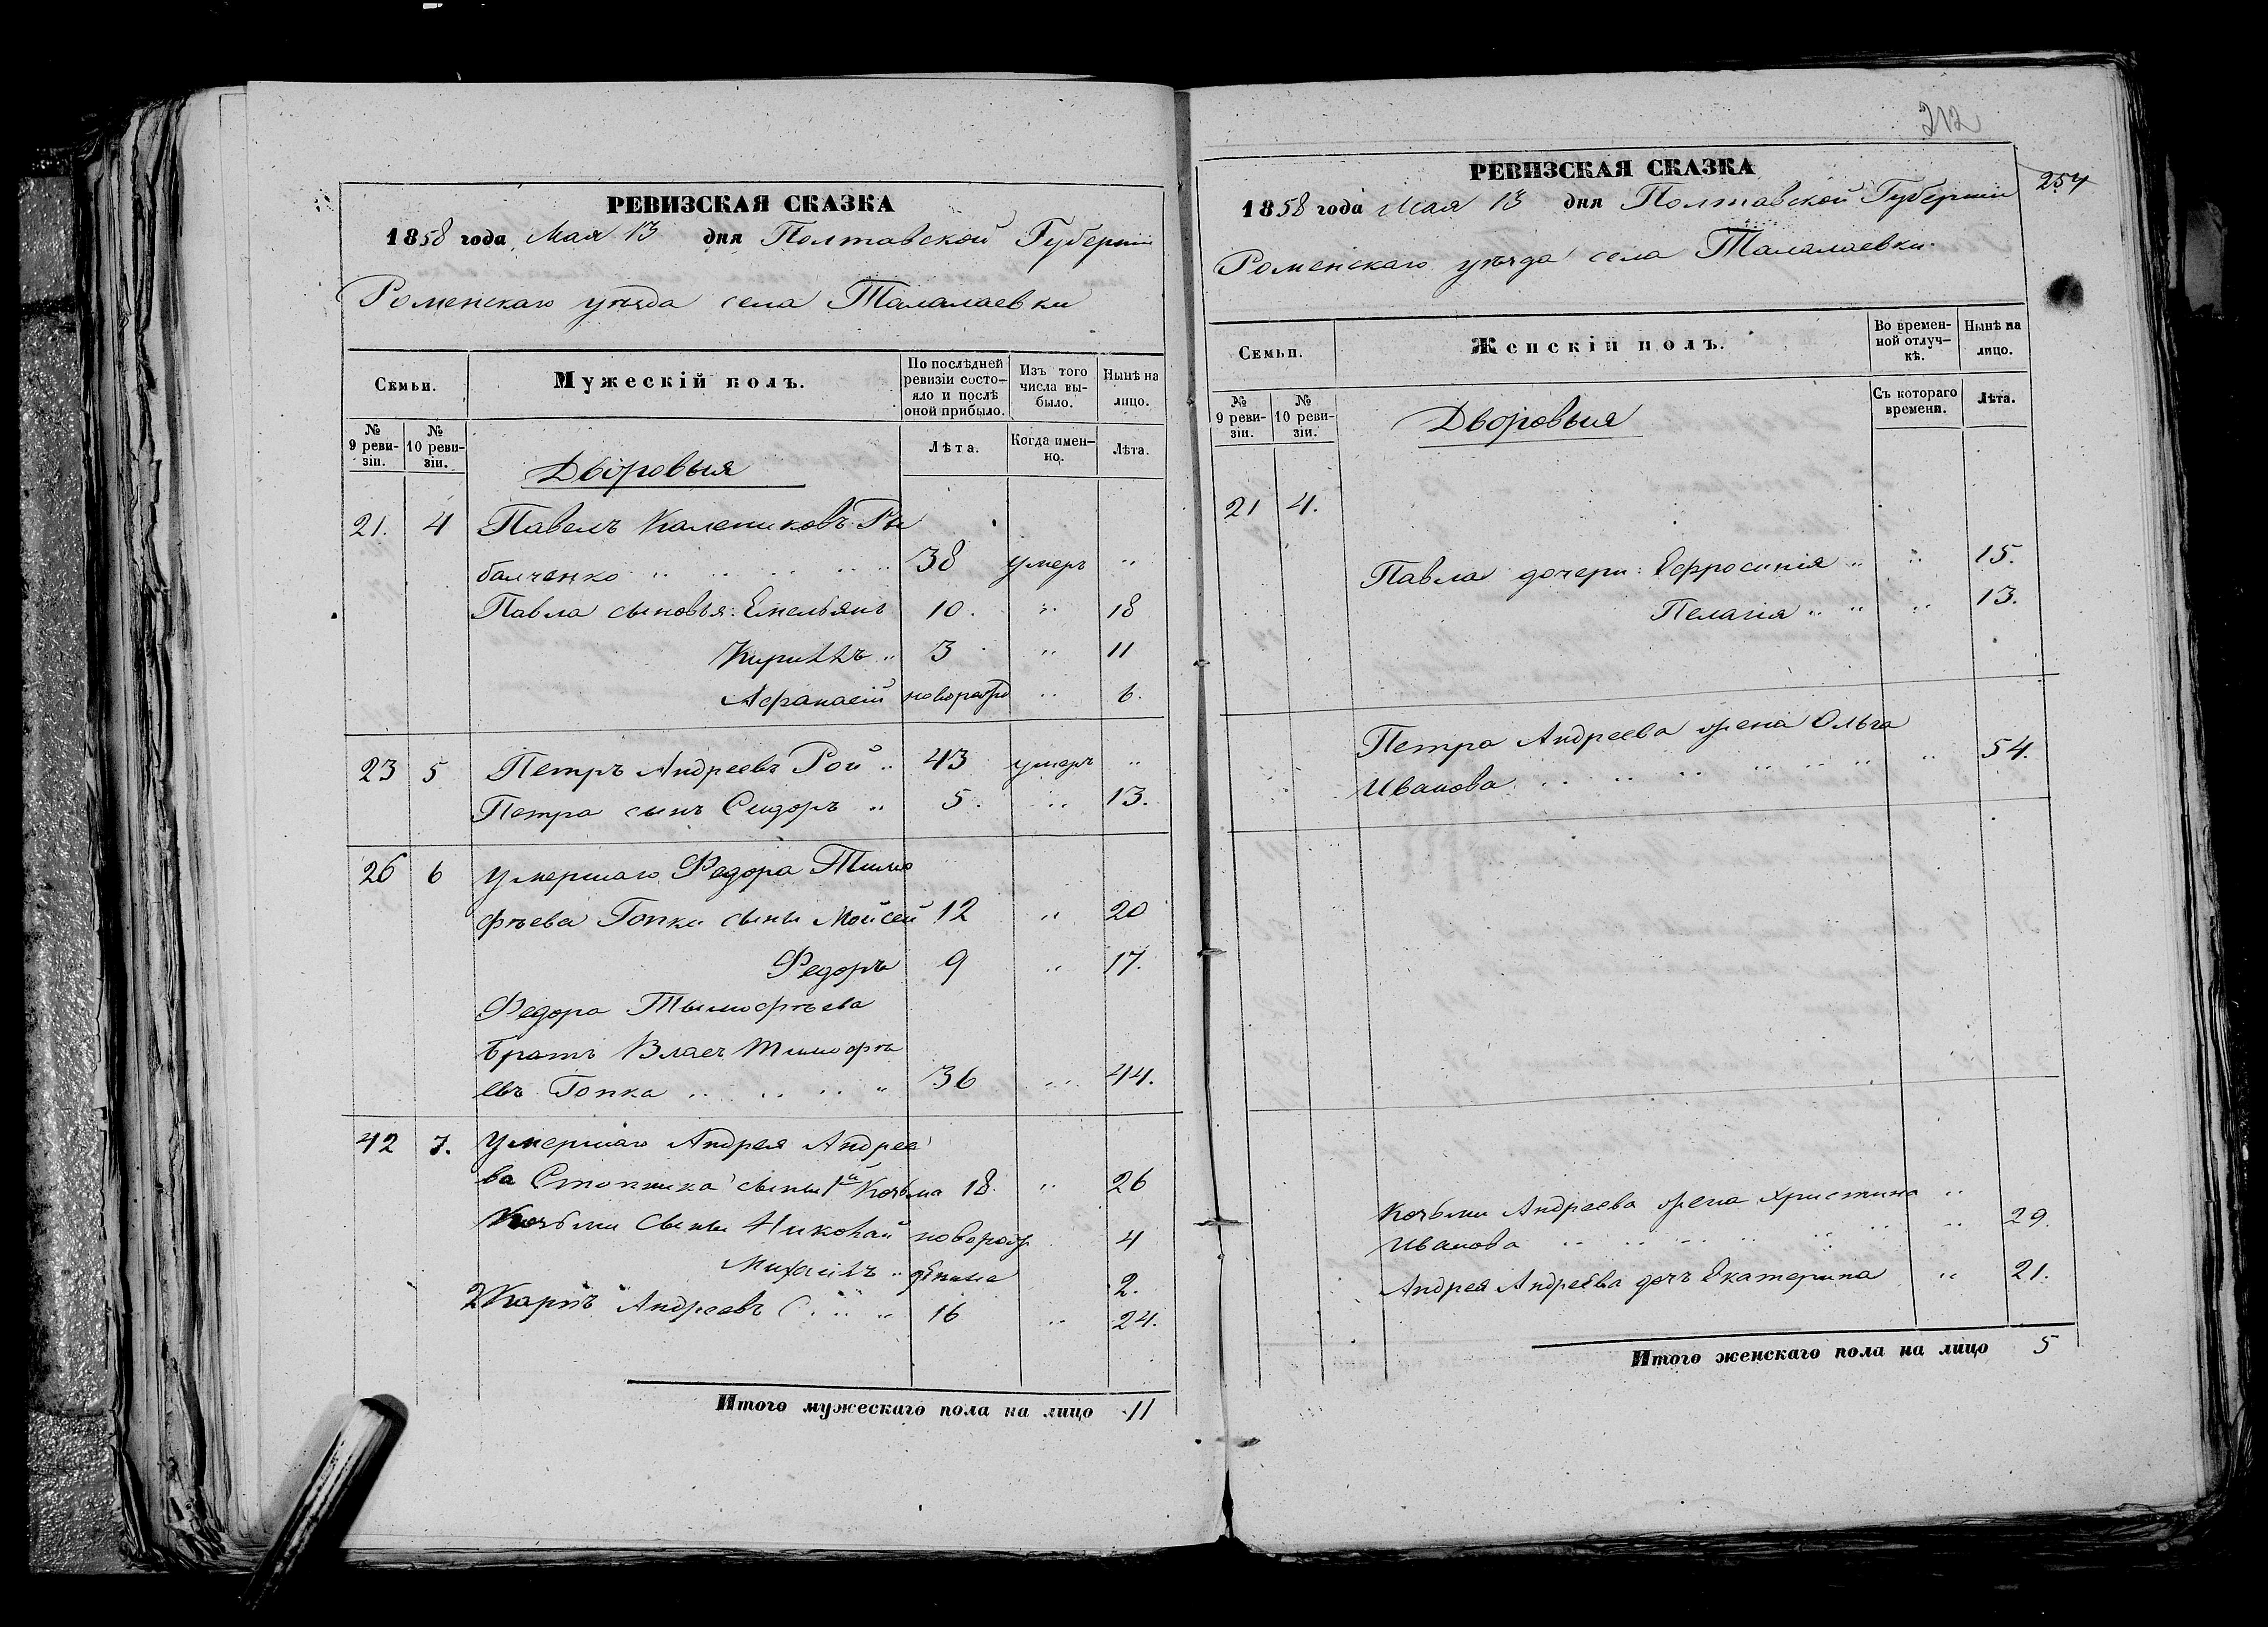 РЕВИЗСКАЯ СКАЗКА
1858 года Мая 13 дня Полтавской Губерніи
Роменскаго уѣзда села Талалаевки
Семьи.
Мужескій полъ.
По послѣдней ревизіи состо-
яло и послѣ оной прибыло.
Изъ того числа вы-
было.
Нынѣ на лицо.
№ 9 реви-
зіи.
№ 10 реви-
зіи.
Дворовыя
Лѣта.
Когда имен-
но.
Лѣта.
21. 4 Павелъ Калениковъ Ры
балченко 38 умеръ "
Павла сыновья: Емельянъ 10. " 18
Кириллъ " 3 " 11
Афанасій новорожд " 6.
23 5 Петръ Андреевъ Рой " 43 умеръ "
Петра сынъ Сидоръ " 5. " 13.
26 6 Умершаго Федора Тимо
фѣева Гопки сыны Мойсей 12 " 20
Федоръ 9 " 17.
Федора Тымофѣева
братъ Власъ Тимофѣ
евъ Гопка " 36 " 44.
42 7. Умершаго Андрея Андрее
ва сыны 1й Козьма 18. " 26
Козьмы сыны Николай новорож 4
Михаилъ " дённые 2.
2 Карпъ Андреевъ " 16 " 24.
Итого мужескаго пола на лицо 11
212
254
РЕВИЗСКАЯ СКАЗКА
1858 года Мая 13 дня Полтавской Губерніи
Роменскаго уѣзда села Талалаевки
Семьи.
Женскій полъ.
Во времен-
ной отлуч-
кѣ.
Нынѣ на лицо.
№ 9 реви-
зіи.
№ 10 реви-
зіи.
Дворовыя
Съ котораго времени.
Лѣта.
21 4.
Павла дочери: Ефросинія " " 15.
Пелагія " " " 13.
Петра Андреева жена Ольга
Иванова " " 54.
Козьмы Андреева жена Христина "
Иванова " " 29.
Андрея Андреева дочь Екатерина " 21.
Итого женскаго пола на лицо 5